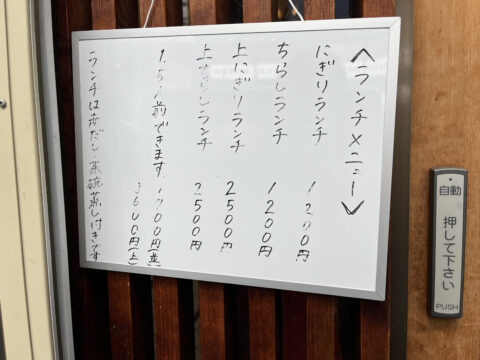 <ランチメニュー>
にぎりランチ 1200円
ちらしランチ 1200円
上にぎりランチ 2500円
上ちらしランチ 2500円
1.5人前できます 1700円(並)
3600円(上)
ランチは赤だし・茶碗蒸し付きです
自動
押して下さい
PUSH